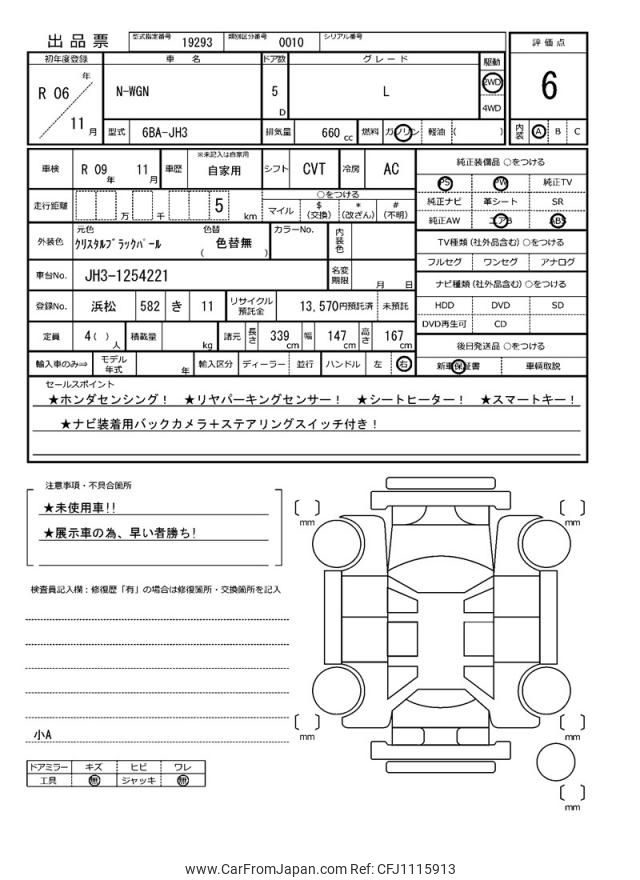 出品票 型式指定番号 19293 類別区分番号 0010 シリアル番号
評価点
6
初年度登録 車名 ドア数 グレード 駆動
R 06 年 11 月 N-WGN 5 D L 2WD 4WD
型式 6BA-JH3 排気量 660 cc 燃料 ガソリン 軽油 ( )
内装 A B C
車検 R 09 年 11 月 車歴 ※未記入は自家用 自家用 シフト CVT 冷房 AC
純正装備品 ○をつける
PS PW 純正TV
純正ナビ 革シート SR
純正AW エアB ABS
走行距離 万 千 5 km ○をつける
マイル $(交換) *(改ざん) #(不明)
TV種類(社外品含む)○をつける
フルセグ ワンセグ アナログ
外装色 元色 クリスタルブラックパール 色替 ( 色替無 ) カラーNo. 内装色
ナビ種類(社外品含む)○をつける
HDD DVD SD
DVD再生可 CD
車台No. JH3-1254221 名変期限 月 日
登録No. 浜松 582 き 11 リサイクル預託金 13,570円預託済 未預託
定員 4( ) 人 積載量 kg 諸元 長さ 339 cm 幅 147 cm 高さ 167 cm
後日発送品 ○をつける
新車保証書 車輌取説
輸入車のみ⇒ モデル年式 年 輸入区分 ディーラー 並行 ハンドル 左 右
セールスポイント
★ホンダセンシング! ★リヤパーキングセンサー! ★シートヒーター! ★スマートキー!
★ナビ装着用バックカメラ+ステアリングスイッチ付き!
注意事項・不具合箇所
★未使用車!!
★展示車の為、早い者勝ち!
検査員記入欄:修復歴「有」の場合は修復箇所・交換箇所を記入
小A
ドアミラー キズ ヒビ ワレ
工具 無 ジャッキ 無
[ ] mm
[ ] mm
[ ] mm
[ ] mm
[ ] mm
www.CarFromJapan.com Ref: CFJ1115913